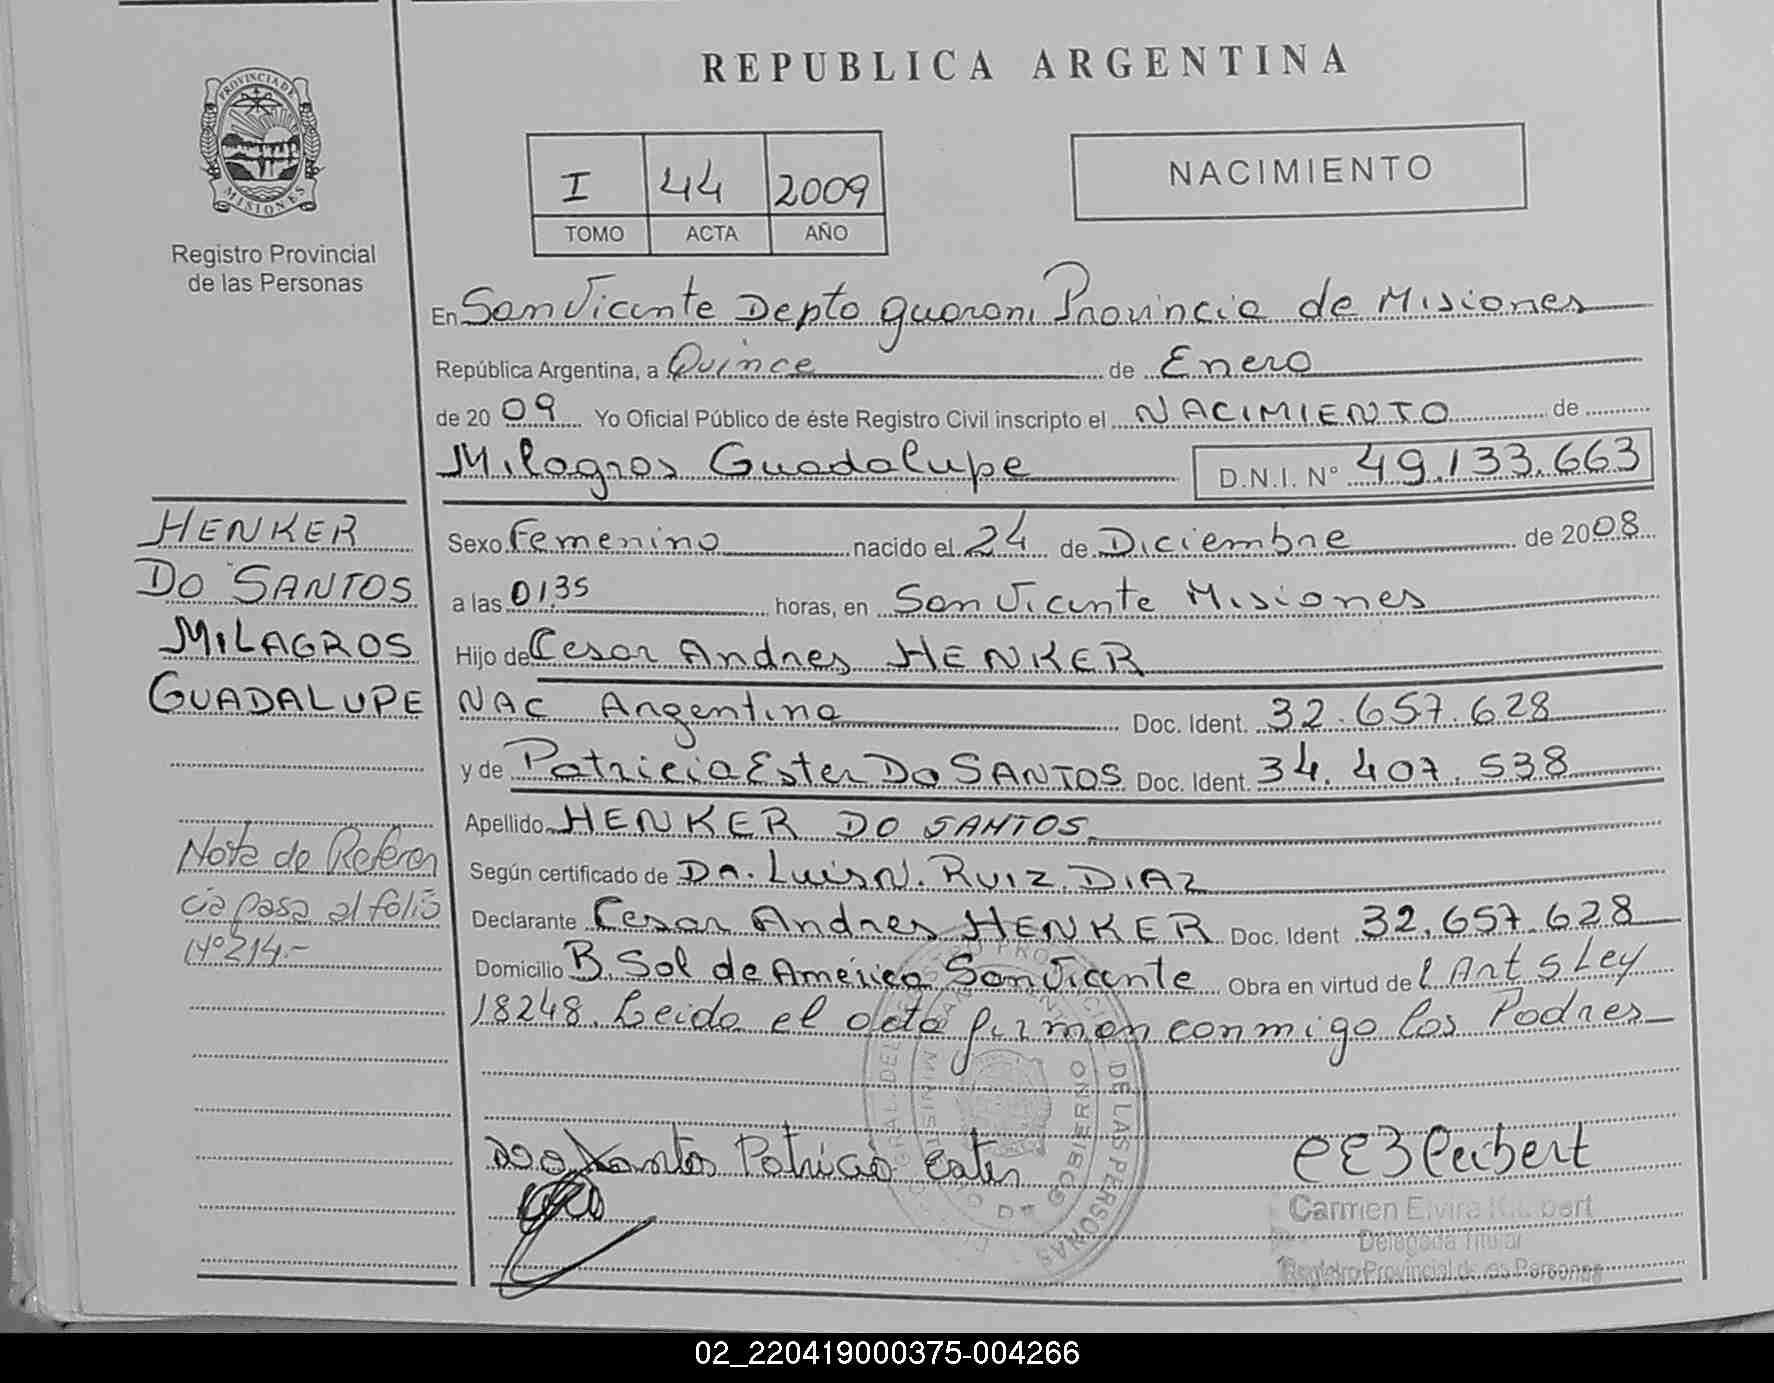 REPUBLICA ARGENTINA
PROVINCIA DE
MISIONES
Registro Provincial
de las Personas
I 44 2009
TOMO ACTA AÑO
NACIMIENTO
En San Vicente Depto guarani Provincia de Misiones
República Argentina, a Quince de Enero
de 20 09 Yo Oficial Público de éste Registro Civil inscripto el NACIMIENTO de
Milagros Guadalupe D.N.I. N° 49.133.663
HENKER
DO SANTOS
MILAGROS
GUADALUPE
Nota de Referen
cia pasa al folio
N° 214.-
Sexo Femenino nacido el 24 de Diciembre de 2008
a las 01,35 horas, en San Vicente Misiones
Hijo de Cesar Andres HENKER
NAC Argentina Doc. Ident. 32.657.628
y de Patricia Ester Do SANTOS Doc. Ident. 34.407.538
Apellido HENKER DO SANTOS
Según certificado de DR. Luis N. Ruiz DIAZ
Declarante Cesar Andres HENKER Doc. Ident 32.657.628
Domicilio B. Sol de América San Vicente Obra en virtud de l Art 5 Ley
18248. Leida el acta firman conmigo los Padres
DE LAS PERSONAS
Dos Santos Patricia Ester
Carmen Elvira
Delegada Titular
Registro Provincial de las Personas
02_220419000375-004266